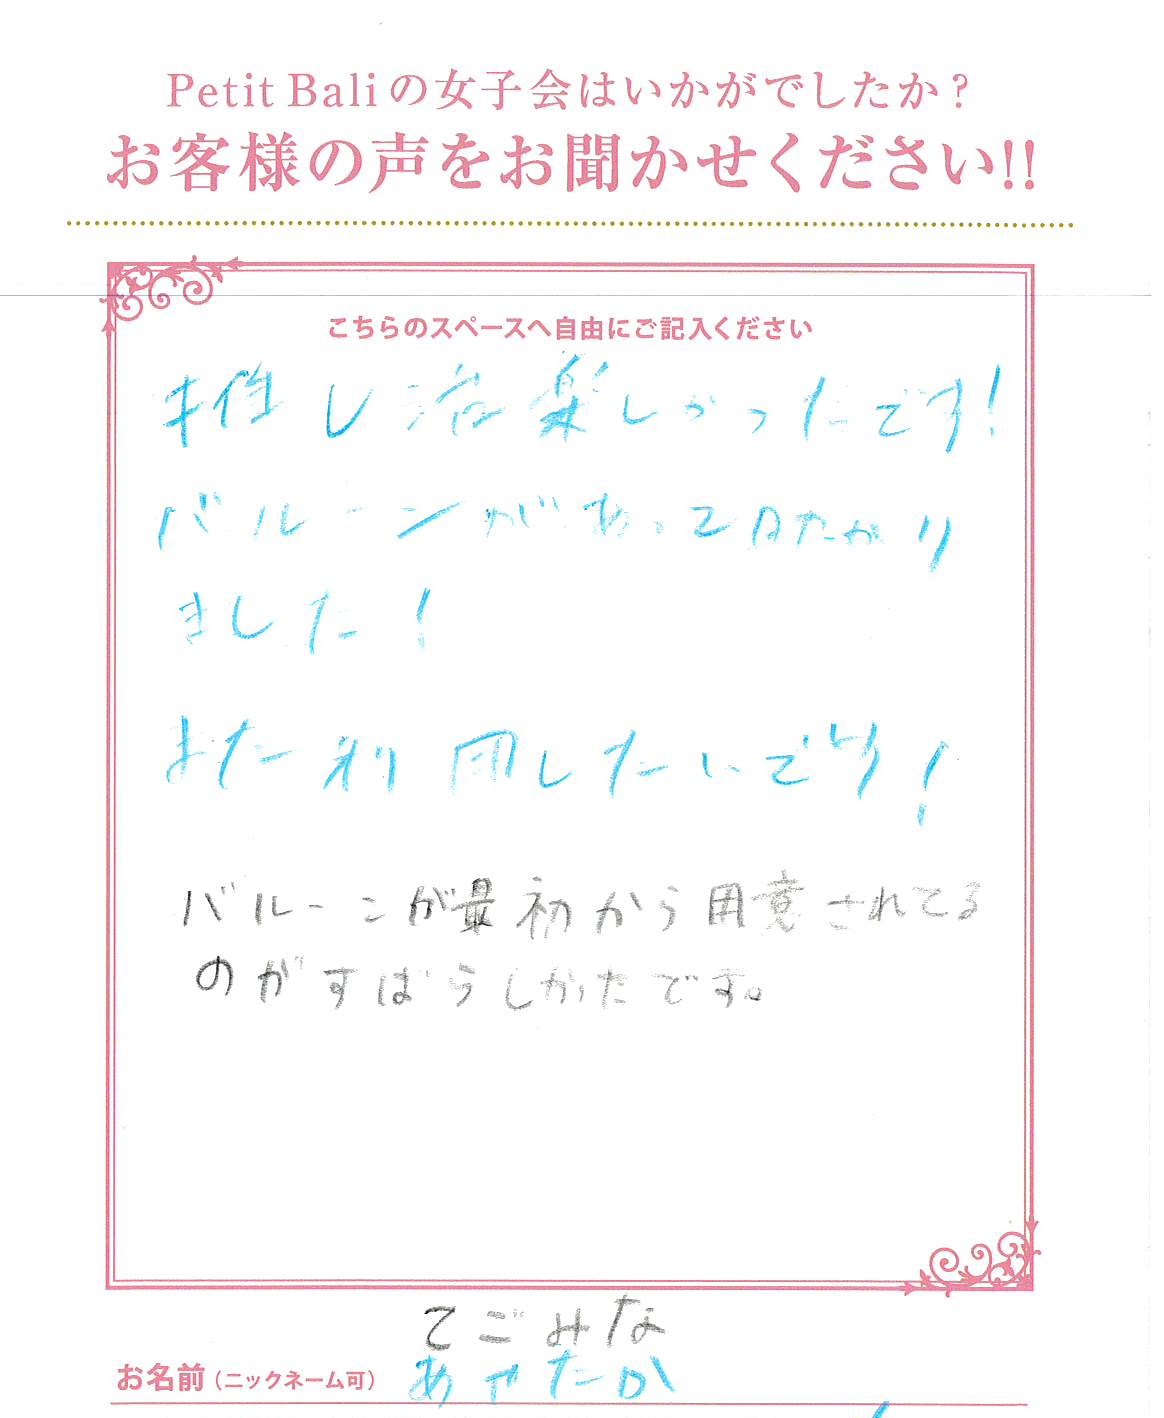 Petit Baliの女子会はいかがでしたか？
お客様の声をお聞かせください!!
こちらのスペースへ自由にご記入ください
推し活楽しかったです！
バルーンがあって日たかり
ました！
また利用したいです！
バルーンが最初から用意されてる
のがすばらしかったです。
てごみな
お名前（ニックネーム可） あやたか